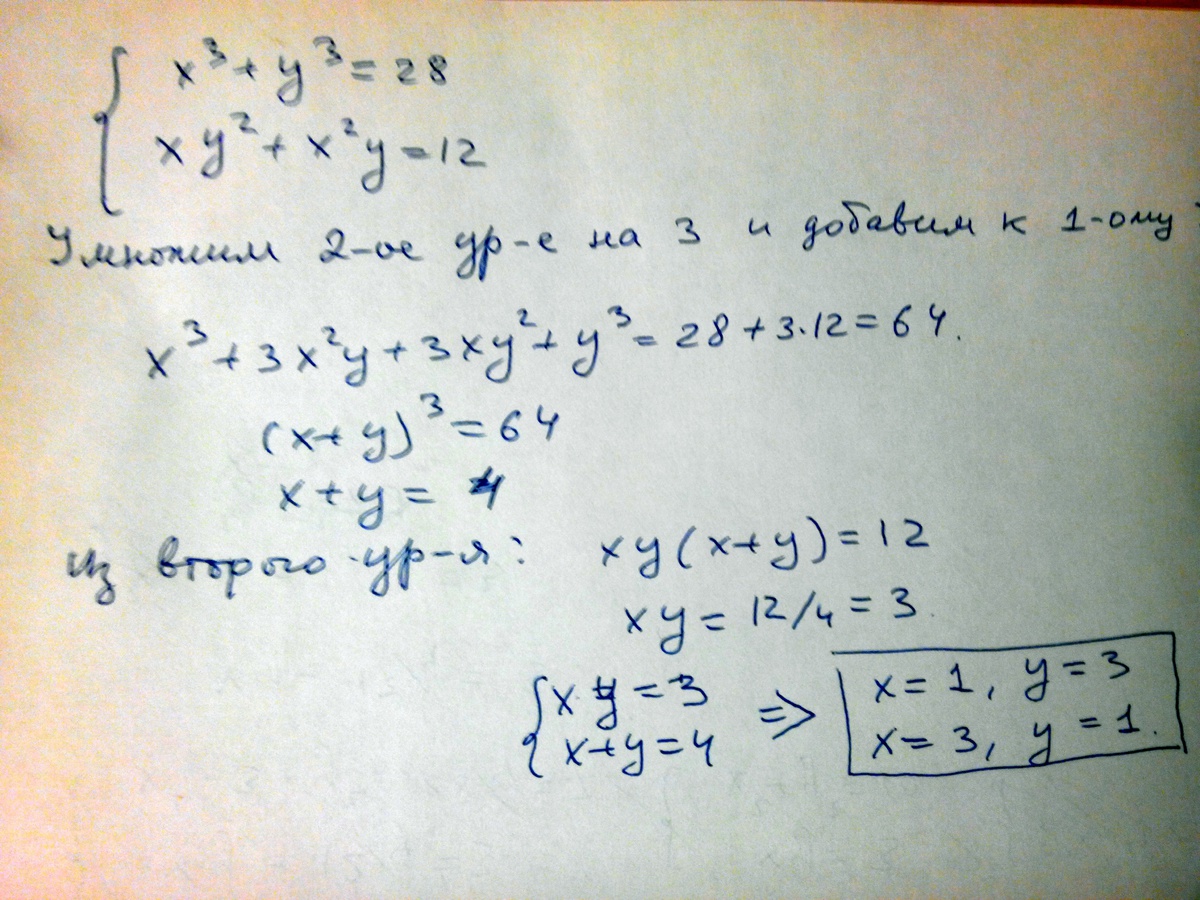 x³ + y³ = 28
xy² + x²y = 12
Умножим 2-ое ур-е на 3 и добавим к 1-ому
x³ + 3x²y + 3xy² + y³ = 28 + 3·12 = 64.
(x+y)³ = 64
x + y = 4
Из второго ур-я: xy(x+y) = 12
xy = 12/4 = 3.
xy = 3
x+y = 4 ⇒ x = 1, y = 3
x = 3, y = 1.